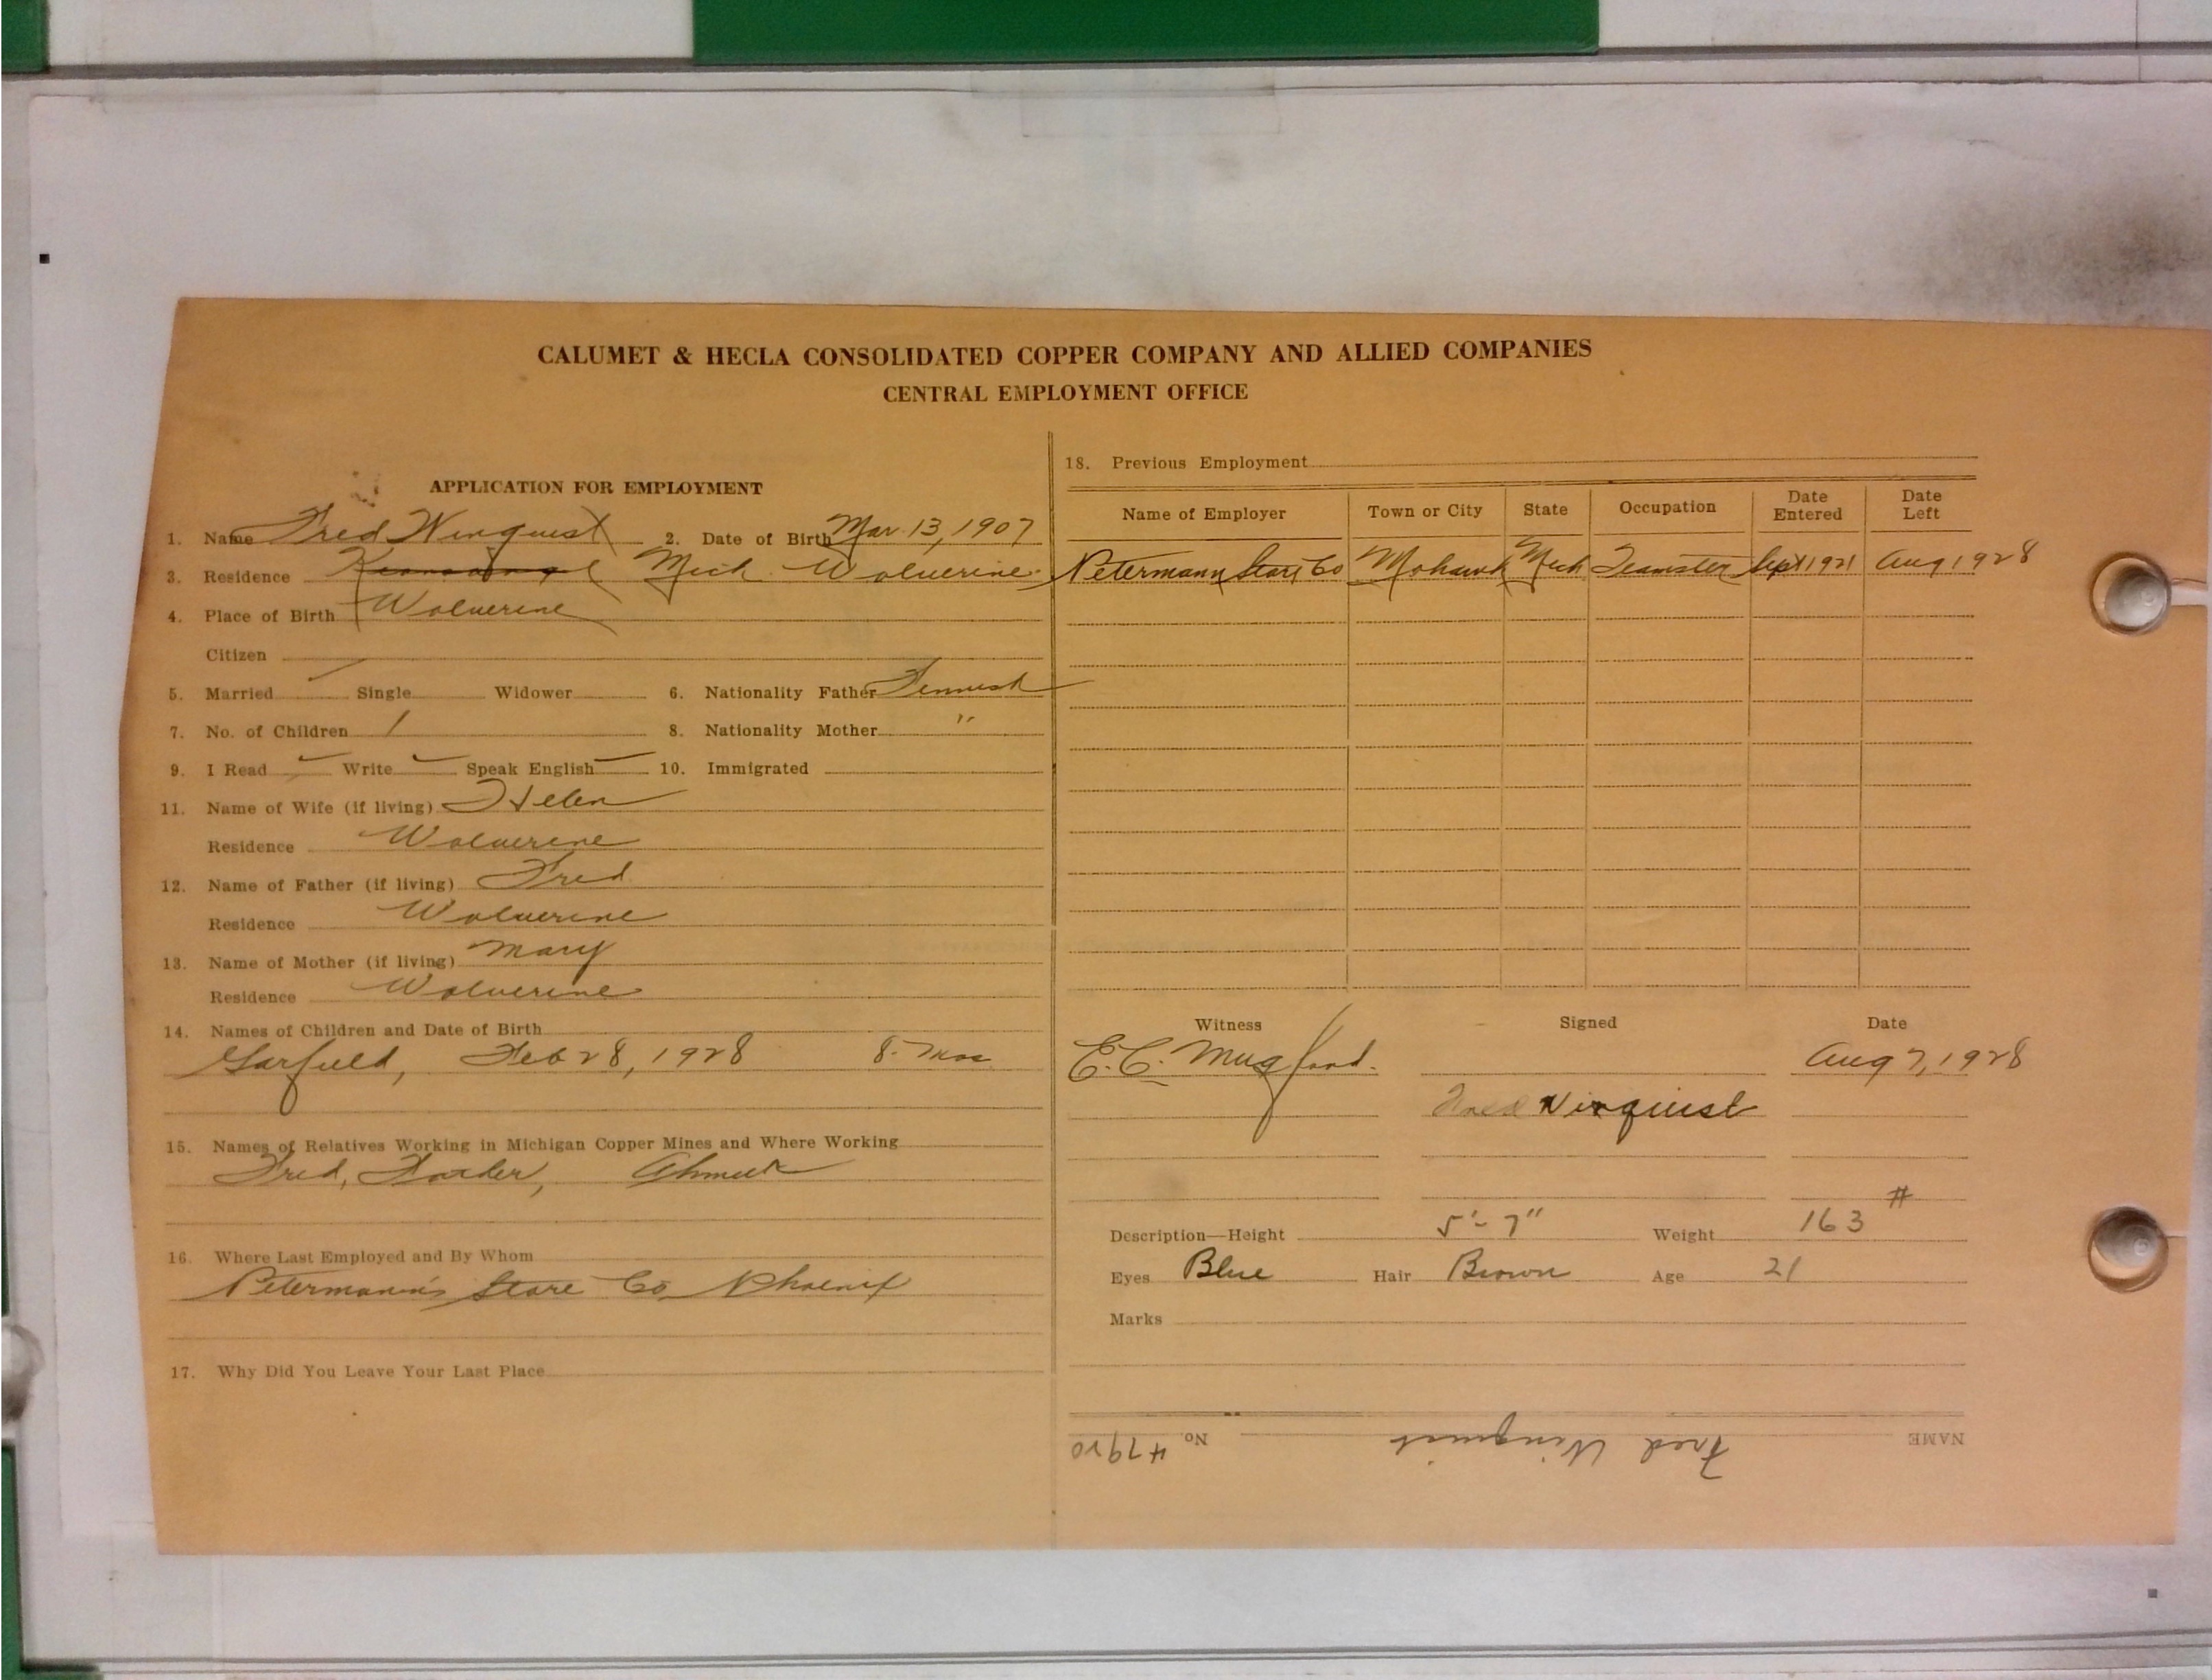 CALUMET & HECLA CONSOLIDATED COPPER COMPANY AND ALLIED COMPANIES
CENTRAL EMPLOYMENT OFFICE
APPLICATION FOR EMPLOYMENT
1. Name Fred Winquist 2. Date of Birth Mar. 13, 1907
3. Residence Mich Wolverine
4. Place of Birth Wolverine
Citizen
5. Married ✓ Single Widower 6. Nationality Father Finnish
7. No. of Children 1 8. Nationality Mother "
9. I Read ✓ Write ✓ Speak English ✓ 10. Immigrated
11. Name of Wife (if living) Helen
Residence Wolverine
12. Name of Father (if living) Fred
Residence Wolverine
13. Name of Mother (if living) Mary
Residence Wolverine
14. Names of Children and Date of Birth
Garfield, Feb 28, 1928 8. Mos
15. Names of Relatives Working in Michigan Copper Mines and Where Working
Fred, Father, Ahmeek
16. Where Last Employed and By Whom
Petermann's Store Co Phoenix
17. Why Did You Leave Your Last Place
18. Previous Employment
Name of Employer Town or City State Occupation Date Entered Date Left
Petermann Store Co Mohawk Mich Teamster Sept 1921 Aug 1928
Witness Signed Date
E.C. Mugford. Aug 7, 1928
Fred Winquist
Description—Height 5'-7" Weight 163 #
Eyes Blue Hair Brown Age 21
Marks
NAME Fred Winquist No. 47920